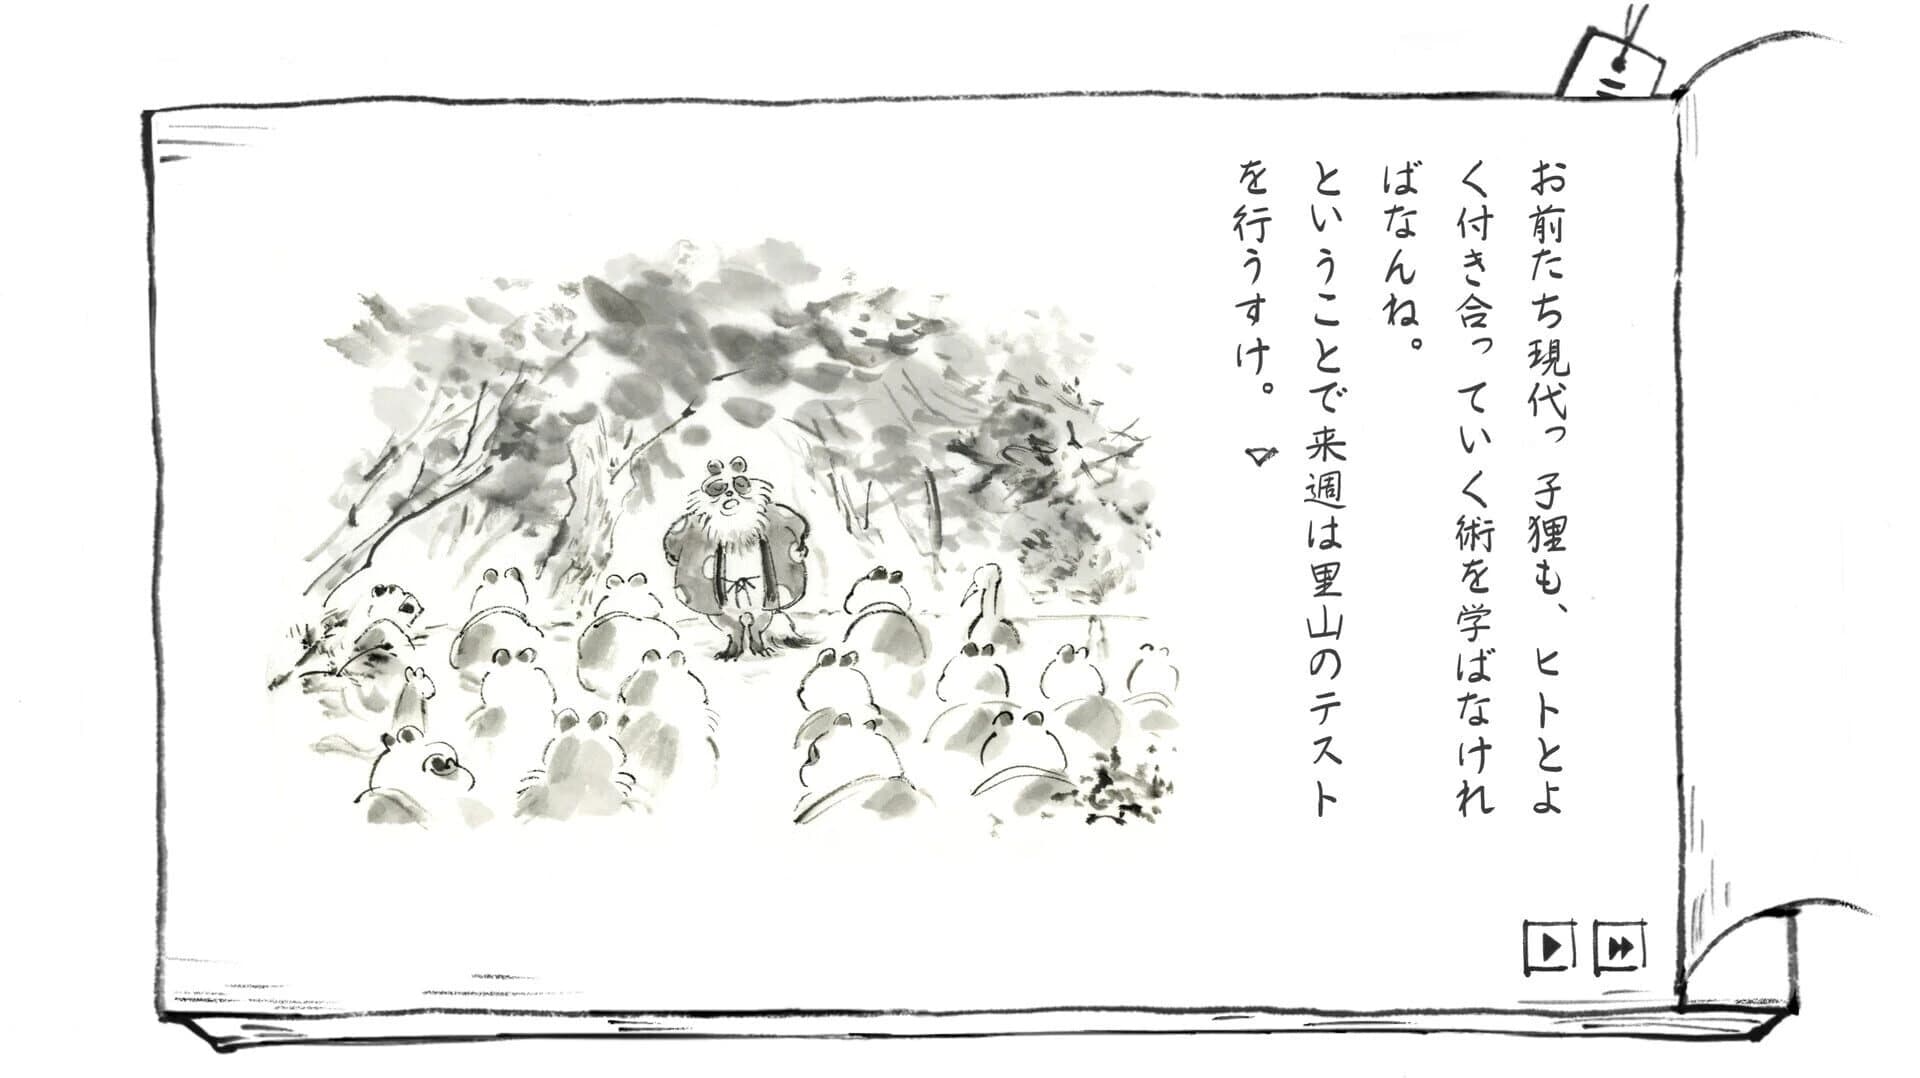 お前たち現代っ子狸も、ヒトとよ
く付き合っていく術を学ばなけれ
ばなんね。
ということで来週は里山のテスト
を行うすけ。